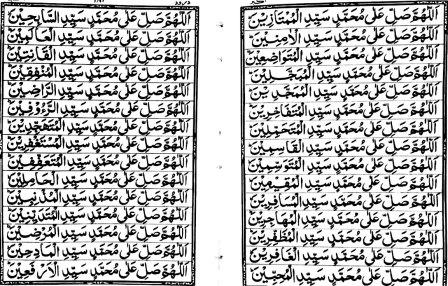 اَللّٰهُمَّ صَلِّ عَلٰى مُحَمَّدٍ سَيِّدِ الْمُمْتَازِيْنَ
اَللّٰهُمَّ صَلِّ عَلٰى مُحَمَّدٍ سَيِّدِ الْاٰمِنِيْنَ
اَللّٰهُمَّ صَلِّ عَلٰى مُحَمَّدٍ سَيِّدِ الْمُتَوَاضِعِيْنَ
اَللّٰهُمَّ صَلِّ عَلٰى مُحَمَّدٍ سَيِّدِ
اَللّٰهُمَّ صَلِّ عَلٰى مُحَمَّدٍ سَيِّدِ
اَللّٰهُمَّ صَلِّ عَلٰى مُحَمَّدٍ سَيِّدِ الْمُتَفَاخِرِيْنَ
اَللّٰهُمَّ صَلِّ عَلٰى مُحَمَّدٍ سَيِّدِ
اَللّٰهُمَّ صَلِّ عَلٰى مُحَمَّدٍ سَيِّدِ الْقَاسِمِيْنَ
اَللّٰهُمَّ صَلِّ عَلٰى مُحَمَّدٍ سَيِّدِ الْمُتَوَسِّمِيْنَ
اَللّٰهُمَّ صَلِّ عَلٰى مُحَمَّدٍ سَيِّدِ الْمُقِيْمِيْنَ
اَللّٰهُمَّ صَلِّ عَلٰى مُحَمَّدٍ سَيِّدِ الْمُسَافِرِيْنَ
اَللّٰهُمَّ صَلِّ عَلٰى مُحَمَّدٍ سَيِّدِ الْمُهَاجِرِيْنَ
اَللّٰهُمَّ صَلِّ عَلٰى مُحَمَّدٍ سَيِّدِ الْمُظَفَّرِيْنَ
اَللّٰهُمَّ صَلِّ عَلٰى مُحَمَّدٍ سَيِّدِ الْغَافِرِيْنَ
اَللّٰهُمَّ صَلِّ عَلٰى مُحَمَّدٍ سَيِّدِ
اَللّٰهُمَّ صَلِّ عَلٰى مُحَمَّدٍ سَيِّدِ
اَللّٰهُمَّ صَلِّ عَلٰى مُحَمَّدٍ سَيِّدِ الْعَالَمِيْنَ
اَللّٰهُمَّ صَلِّ عَلٰى مُحَمَّدٍ سَيِّدِ الْقَانِتِيْنَ
اَللّٰهُمَّ صَلِّ عَلٰى مُحَمَّدٍ سَيِّدِ الْمُنْفِقِيْنَ
اَللّٰهُمَّ صَلِّ عَلٰى مُحَمَّدٍ سَيِّدِ الرَّاضِيْنَ
اَللّٰهُمَّ صَلِّ عَلٰى مُحَمَّدٍ سَيِّدِ الرَّءُوْفِيْنَ
اَللّٰهُمَّ صَلِّ عَلٰى مُحَمَّدٍ سَيِّدِ
اَللّٰهُمَّ صَلِّ عَلٰى مُحَمَّدٍ سَيِّدِ الْمُسْتَغْفِرِيْنَ
اَللّٰهُمَّ صَلِّ عَلٰى مُحَمَّدٍ سَيِّدِ
اَللّٰهُمَّ صَلِّ عَلٰى مُحَمَّدٍ سَيِّدِ الْحَامِلِيْنَ
اَللّٰهُمَّ صَلِّ عَلٰى مُحَمَّدٍ سَيِّدِ
اَللّٰهُمَّ صَلِّ عَلٰى مُحَمَّدٍ سَيِّدِ
اَللّٰهُمَّ صَلِّ عَلٰى مُحَمَّدٍ سَيِّدِ
اَللّٰهُمَّ صَلِّ عَلٰى مُحَمَّدٍ سَيِّدِ الْمَادِحِيْنَ
اَللّٰهُمَّ صَلِّ عَلٰى مُحَمَّدٍ سَيِّدِ الْاَرْفَعِيْنَ